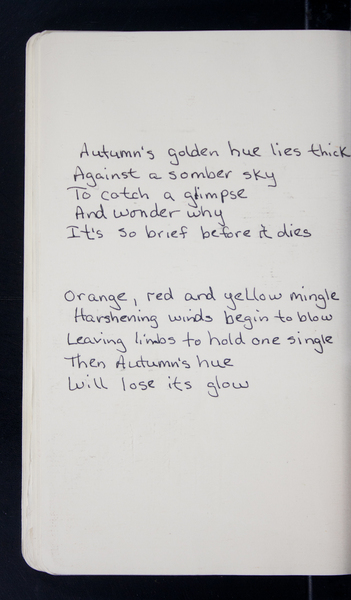 Autumn's golden hue lies thick
Against a somber sky
To catch a glimpse
And wonder why
It's so brief before it dies
Orange, red and yellow mingle
Harshening winds begin to blow
Leaving limbs to hold one single
Then Autumn's hue
Will lose its glow